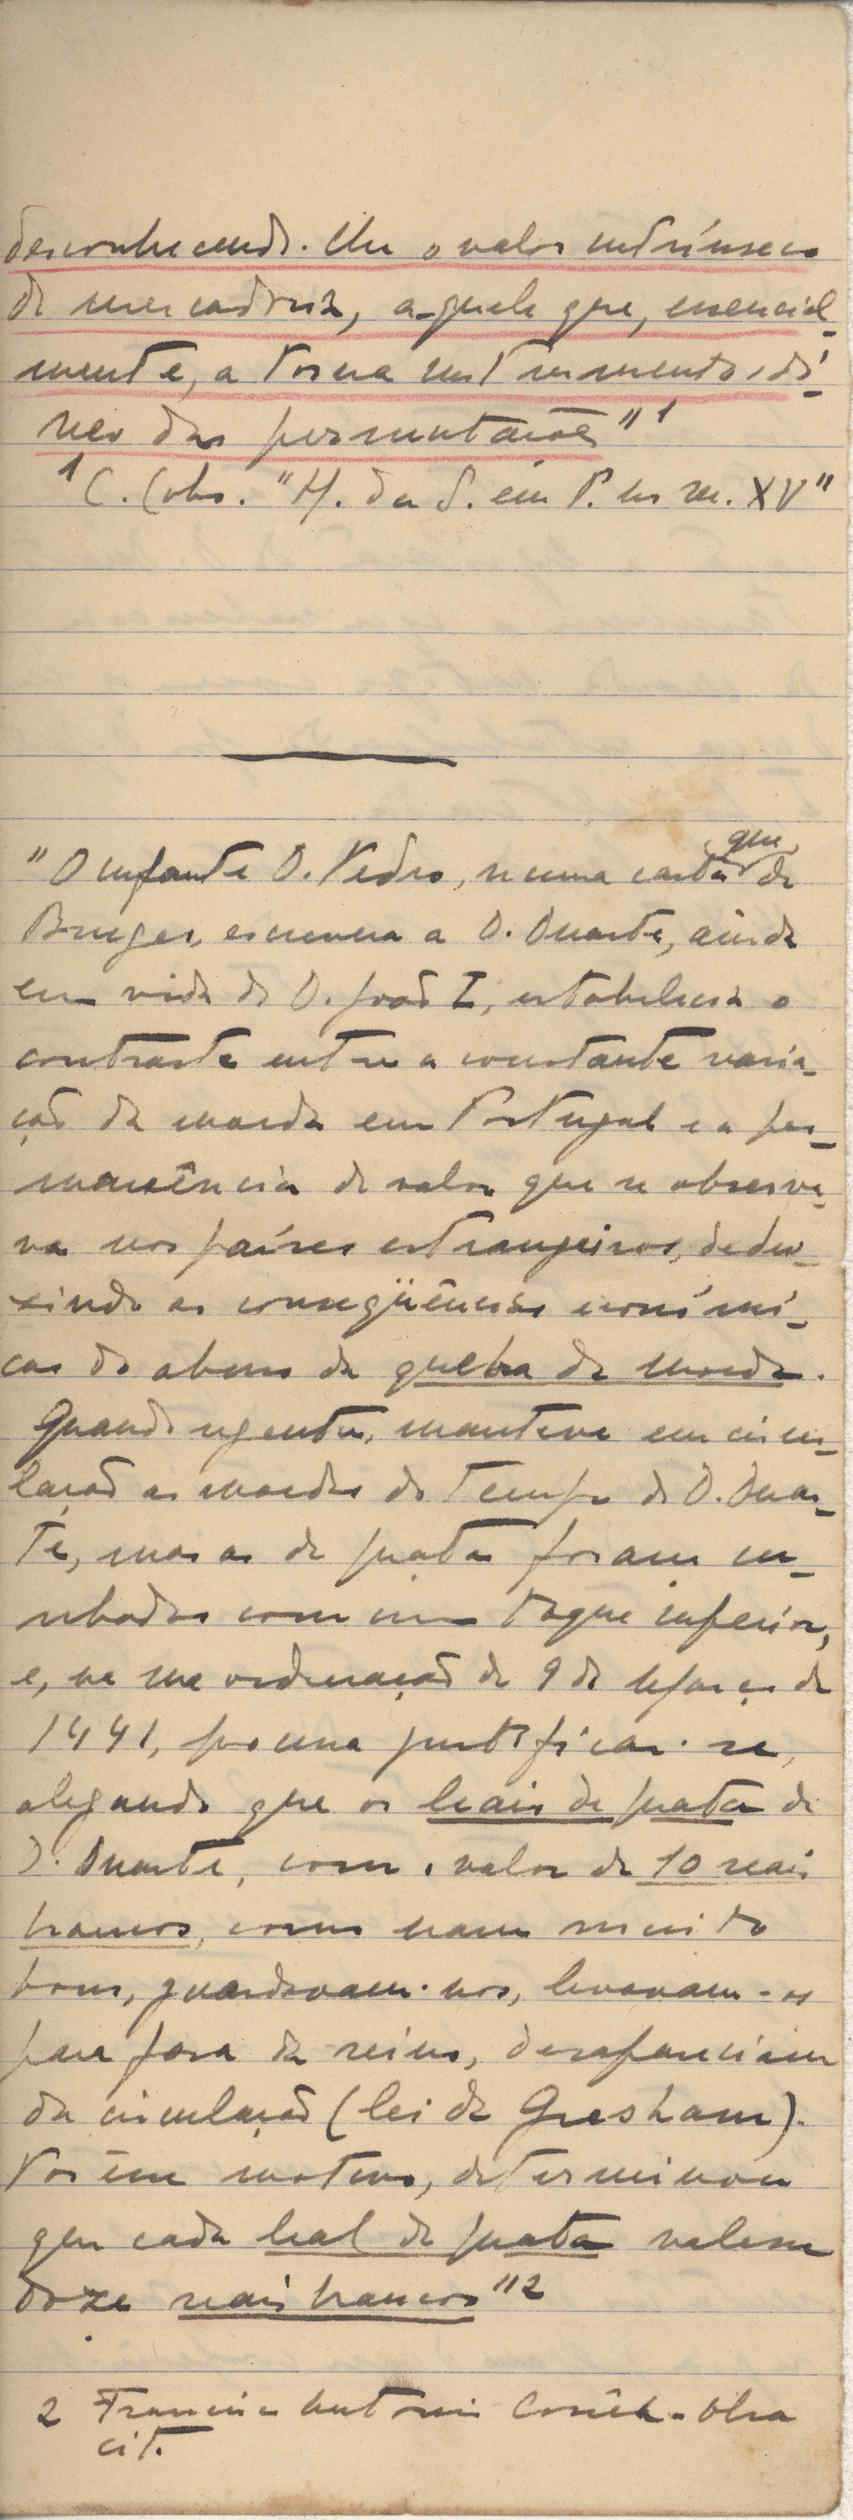 desconhecendo-lhe o valor intrínseco
de mercadoria, aquele que, essencial-
mente, a torna instrumento idó-
neo das permutações" 1
1 C. Lobo. "H. da S. em P. no séc. XV"
"O infante D. Pedro, numa carta que de
Bruges, escrevera a D. Duarte, ainda
em vida de D. João I, estabelecia o
contraste entre a constante varia-
ção da moeda em Portugal e a per-
manência de valor que se observa-
va nos países estrangeiros, dedu-
zindo as conseqüências económi-
cas do abuso da quebra da moeda.
Quando regente, manteve em circu-
lação as moedas do tempo de D. Duar-
te, mas as de prata foram cu-
nhadas com um toque inferior,
e, na sua ordenação de 9 de de
1441, procura justificar-se,
alegando que os leais de prata de
D. Duarte, com o valor de 10 reais
brancos, como eram muito
bons, guardavam-nos, levavam-os
para fora do reino, desapareciam
da circulação (lei de Gresham).
Por êsse motivo, determinou
que cada leal de prata valesse
doze reais brancos" 2
2 Francisco António Corrêa - Obra
cit.